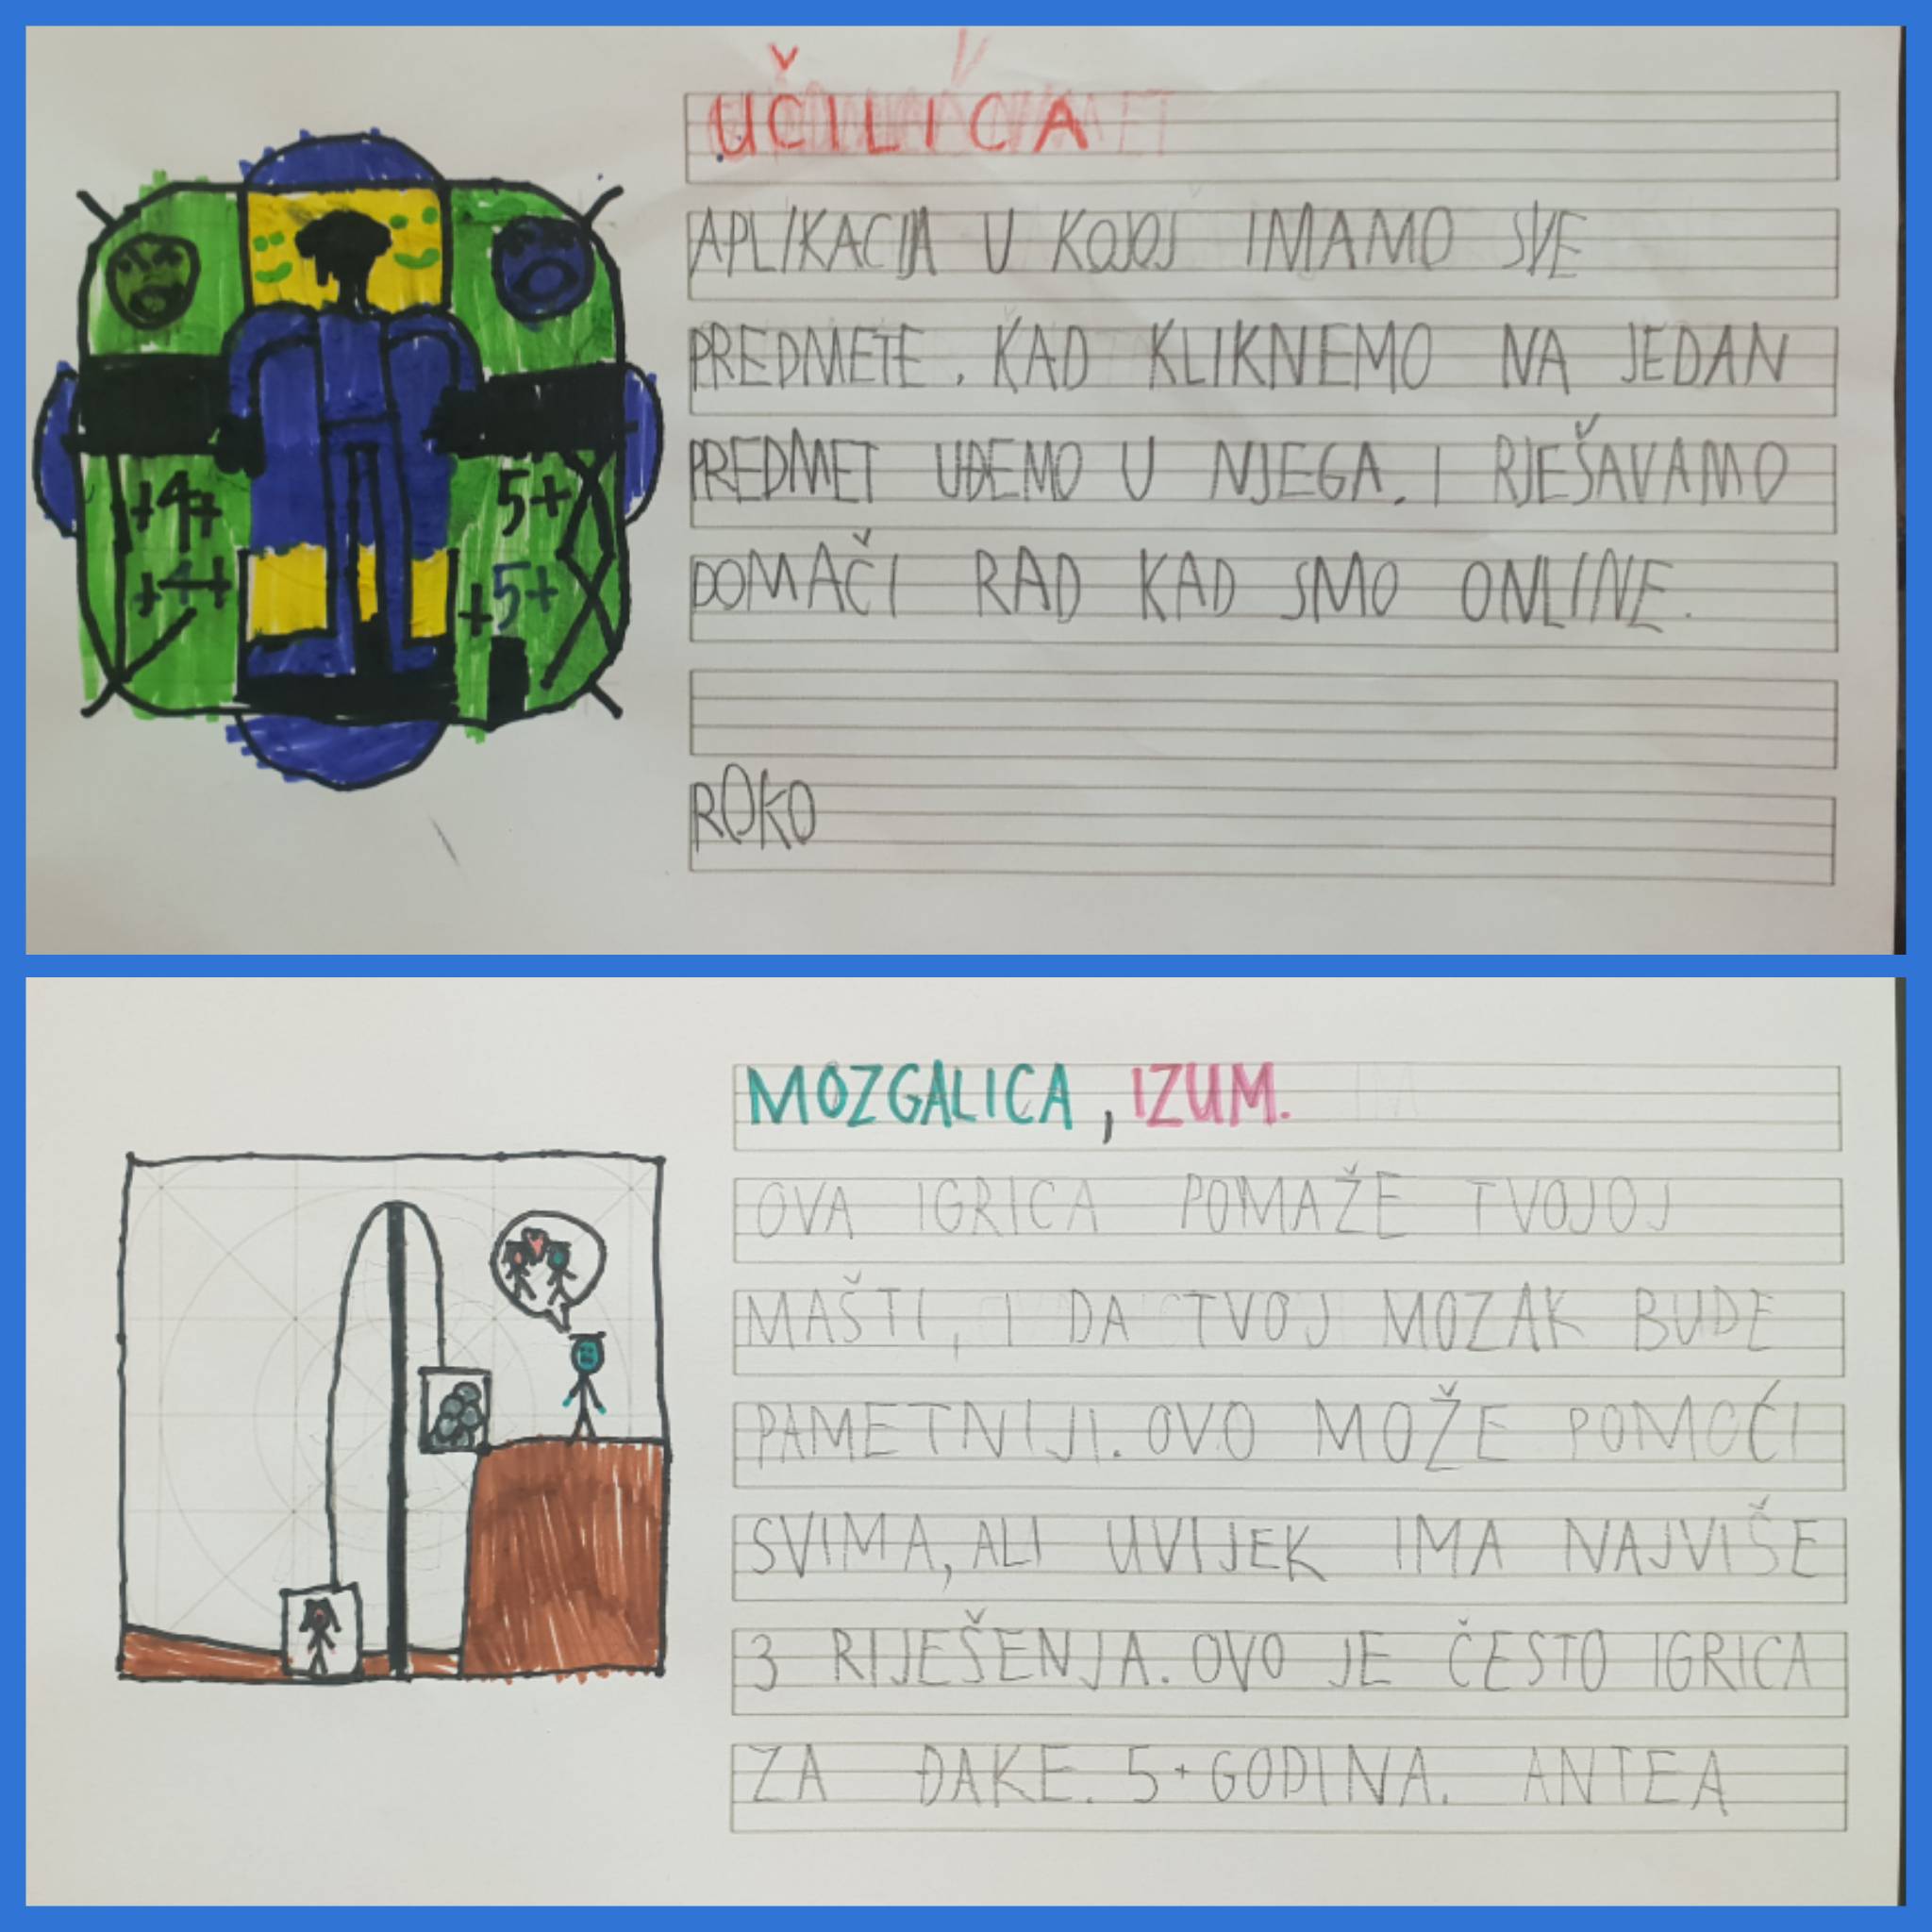 UČILICA
APLIKACIJA U KOJOJ IMAMO SVE
PREDMETE. KAD KLIKNEMO NA JEDAN
PREDMET UĐEMO U NJEGA. I RJEŠAVAMO
DOMAČI RAD KAD SMO ONLINE.
ROKO
+4+
5+
+4+
+5+
MOZGALICA, IZUM.
OVA IGRICA POMAŽE TVOJOJ
MAŠTI, I DA TVOJ MOZAK BUDE
PAMETNIJI. OVO MOŽE POMOĆI
SVIMA, ALI UVIJEK IMA NAJVIŠE
3 RIJEŠENJA. OVO JE ČESTO IGRICA
ZA ĐAKE. 5+GODINA. ANTEA